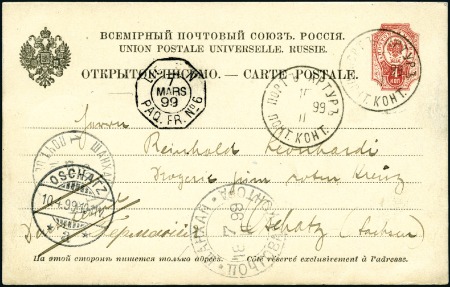 ВСЕМІРНЫЙ ПОЧТОВЫЙ СОЮЗЪ. РОССІЯ.
UNION POSTALE UNIVERSELLE. RUSSIE.
ОТКРЫТОЕ ПИСЬМО. — CARTE POSTALE.
7
MARS
99
PAQ. FR. No 6
ПОРТ-АРТУРЪ
99
ПОЧТ. КОНТ.
ПОЧТ. КОНТ.
4
КОП
Herrn
Reinhold Leonhardi
Drogerie zum roten Kreuz
Oschatz
(Sachsen)
ШАНХАЙ
OSCHATZ
10.4.99
На этой сторонѣ пишется только адресъ. — Côté réservé exclusivement à l'adresse.